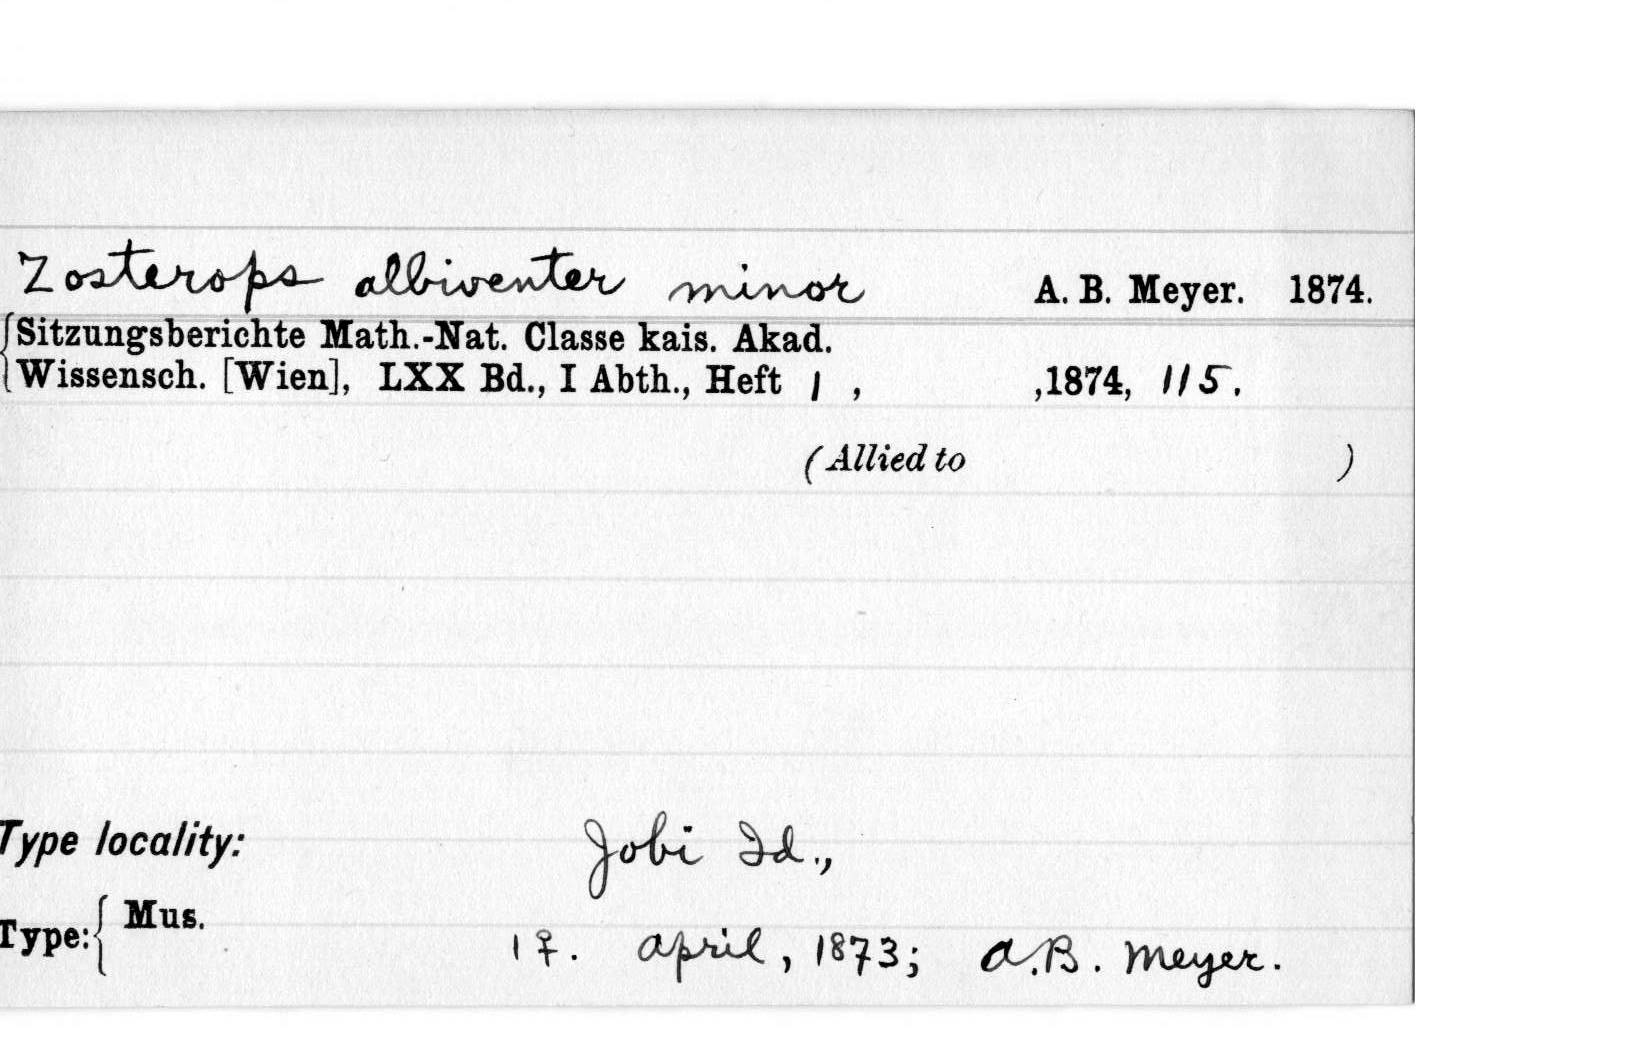 Zosterops albiventer minor A. B. Meyer. 1874.
Sitzungsberichte Math.-Nat. Classe kais. Akad.
Wissensch. [Wien], LXX Bd., I Abth., Heft 1 , ,1874, 115.
(Allied to )
Type locality: Jobi Id.,
Type: Mus.
1 ♀. April, 1873; A.B. Meyer.